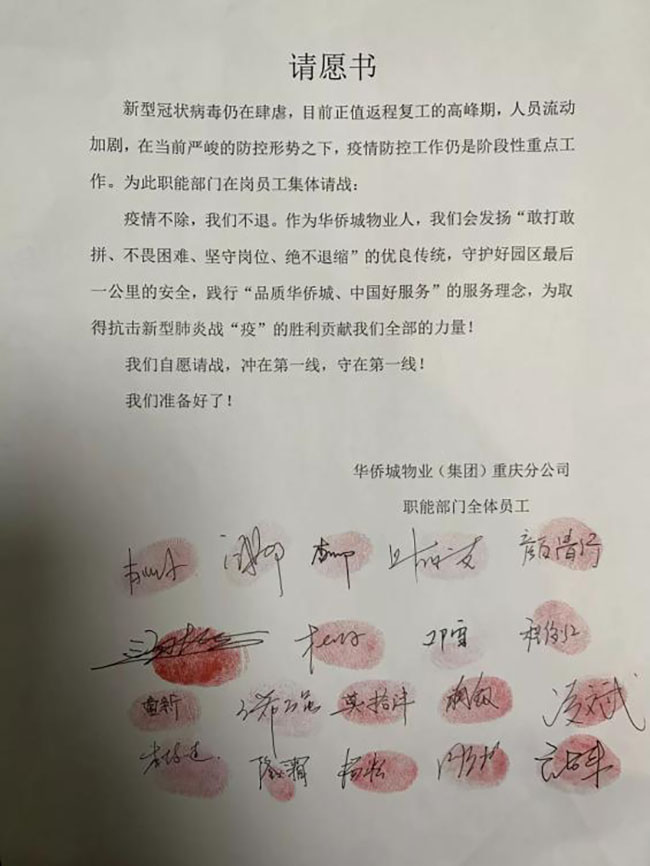 请愿书
新型冠状病毒仍在肆虐，目前正值返程复工的高峰期，人员流动
加剧，在当前严峻的防控形势之下，疫情防控工作仍是阶段性重点工
作。为此职能部门在岗员工集体请战：
疫情不除，我们不退。作为华侨城物业人，我们会发扬“敢打敢
拼、不畏困难、坚守岗位、绝不退缩”的优良传统，守护好园区最后
一公里的安全，践行“品质华侨城、中国好服务”的服务理念，为取
得抗击新型肺炎战“疫”的胜利贡献我们全部的力量！
我们自愿请战，冲在第一线，守在第一线！
我们准备好了！
华侨城物业（集团）重庆分公司
职能部门全体员工
邓雪
杨松